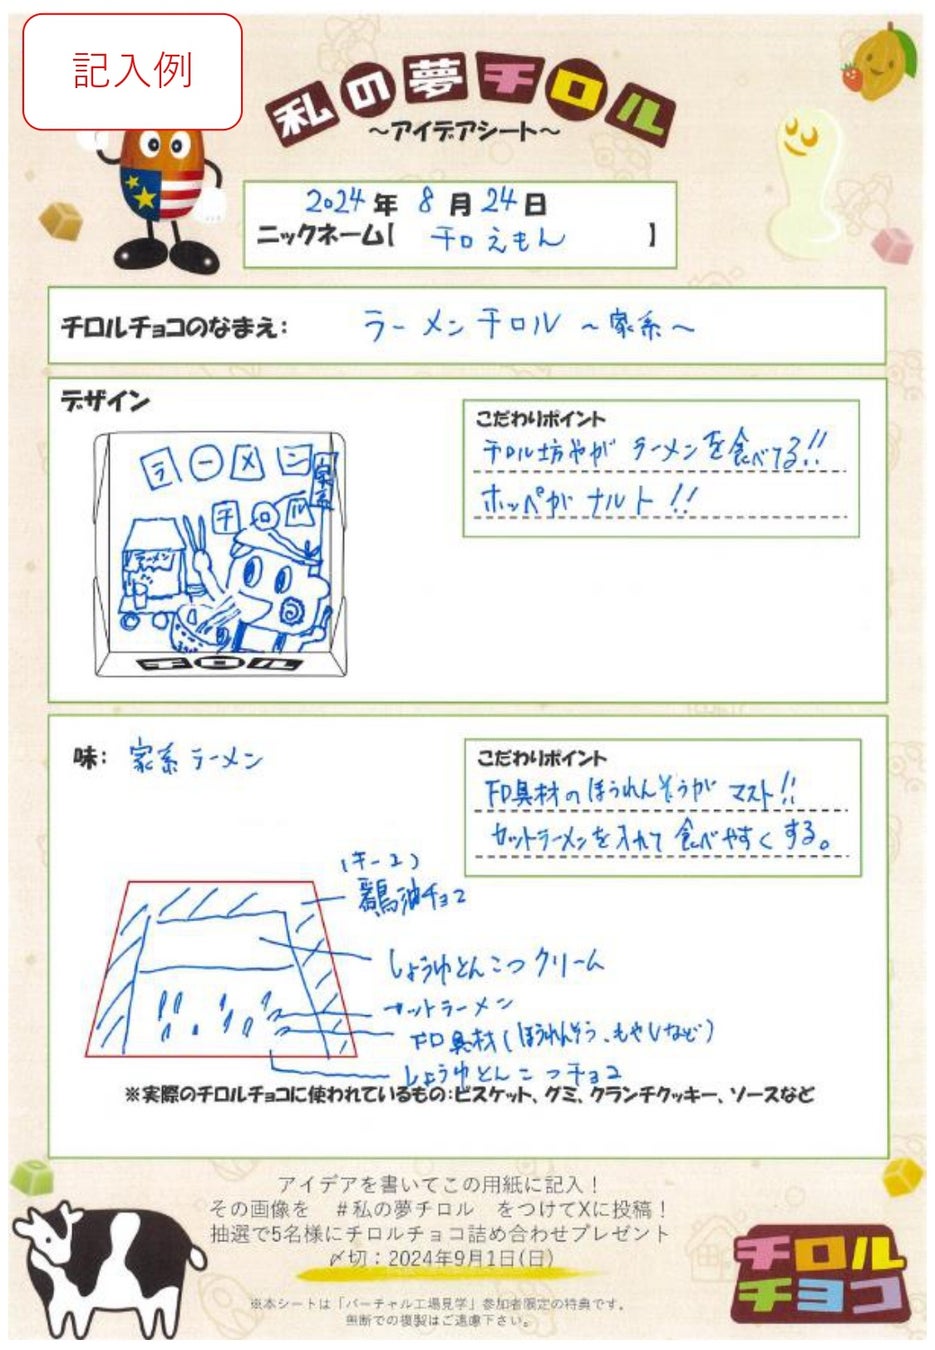 記入例
私の夢チロル
～アイデアシート～
2024年 8月24日
ニックネーム【 チロえもん 】
チロルチョコのなまえ： ラーメンチロル ～家系～
デザイン
ラーメン
家系
チロル
ラーメン
チロル
こだわりポイント
チロル坊やが ラーメンを食べてる!!
ホッペが ナルト!!
味： 家系ラーメン
こだわりポイント
FD具材のほうれんそうが マスト!!
カットラーメンを入れて 食べやすくする。
(チーユ)
鶏油チョコ
しょうゆとんこつクリーム
カットラーメン
FD具材(ほうれんそう、もやしなど)
しょうゆとんこつチョコ
※実際のチロルチョコに使われているもの：ビスケット、グミ、クランチクッキー、ソースなど
アイデアを書いてこの用紙に記入！
その画像を ＃私の夢チロル をつけてXに投稿！
抽選で5名様にチロルチョコ詰め合わせプレゼント
〆切：2024年9月1日(日)
※本シートは「バーチャル工場見学」参加者限定の特典です。
無断での複製はご遠慮下さい。
チロル
チョコ